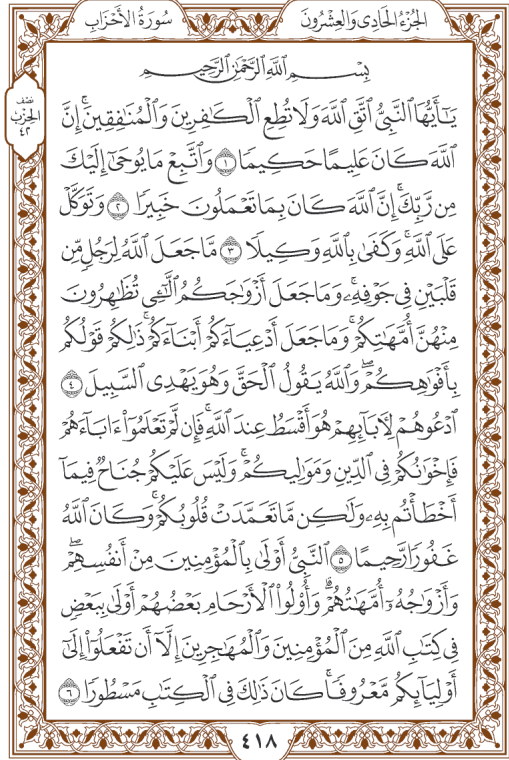 الجُزْءُ الحَادِي وَالعِشْرُونَ
سُورَةُ الأَحْزَابِ
نصف
الحزب
٤٢
بِسْمِ ٱللَّهِ ٱلرَّحْمَٰنِ ٱلرَّحِيمِ
يَٰٓأَيُّهَا ٱلنَّبِيُّ ٱتَّقِ ٱللَّهَ وَلَا تُطِعِ ٱلْكَٰفِرِينَ وَٱلْمُنَٰفِقِينَۚ إِنَّ
ٱللَّهَ كَانَ عَلِيمًا حَكِيمٗا ١ وَٱتَّبِعْ مَا يُوحَىٰٓ إِلَيْكَ
مِن رَّبِّكَۚ إِنَّ ٱللَّهَ كَانَ بِمَا تَعْمَلُونَ خَبِيرٗا ٢ وَتَوَكَّلْ
عَلَى ٱللَّهِۚ وَكَفَىٰ بِٱللَّهِ وَكِيلٗا ٣ مَّا جَعَلَ ٱللَّهُ لِرَجُلٖ مِّن
قَلْبَيْنِ فِي جَوْفِهِۦۚ وَمَا جَعَلَ أَزْوَٰجَكُمُ ٱلَّٰٓـِٔي تُظَٰهِرُونَ
مِنْهُنَّ أُمَّهَٰتِكُمْۚ وَمَا جَعَلَ أَدْعِيَآءَكُمْ أَبْنَآءَكُمْۚ ذَٰلِكُمْ قَوْلُكُم
بِأَفْوَٰهِكُمْۖ وَٱللَّهُ يَقُولُ ٱلْحَقَّ وَهُوَ يَهْدِي ٱلسَّبِيلَ ٤
ٱدْعُوهُمْ لِأٓبَآئِهِمْ هُوَ أَقْسَطُ عِندَ ٱللَّهِۚ فَإِن لَّمْ تَعْلَمُوٓا۟ ءَابَآءَهُمْ
فَإِخْوَٰنُكُمْ فِي ٱلدِّينِ وَمَوَٰلِيكُمْۚ وَلَيْسَ عَلَيْكُمْ جُنَاحٞ فِيمَآ
أَخْطَأْتُم بِهِۦ وَلَٰكِن مَّا تَعَمَّدَتْ قُلُوبُكُمْۚ وَكَانَ ٱللَّهُ
غَفُورٗا رَّحِيمًا ٥ ٱلنَّبِيُّ أَوْلَىٰ بِٱلْمُؤْمِنِينَ مِنْ أَنفُسِهِمْۖ
وَأَزْوَٰجُهُۥٓ أُمَّهَٰتُهُمْۗ وَأُو۟لُوا۟ ٱلْأَرْحَامِ بَعْضُهُمْ أَوْلَىٰ بِبَعْضٖ
فِي كِتَٰبِ ٱللَّهِ مِنَ ٱلْمُؤْمِنِينَ وَٱلْمُهَٰجِرِينَ إِلَّآ أَن تَفْعَلُوٓا۟ إِلَىٰٓ
أَوْلِيَآئِكُم مَّعْرُوفٗاۚ كَانَ ذَٰلِكَ فِي ٱلْكِتَٰبِ مَسْطُورٗا ٦
٤١٨